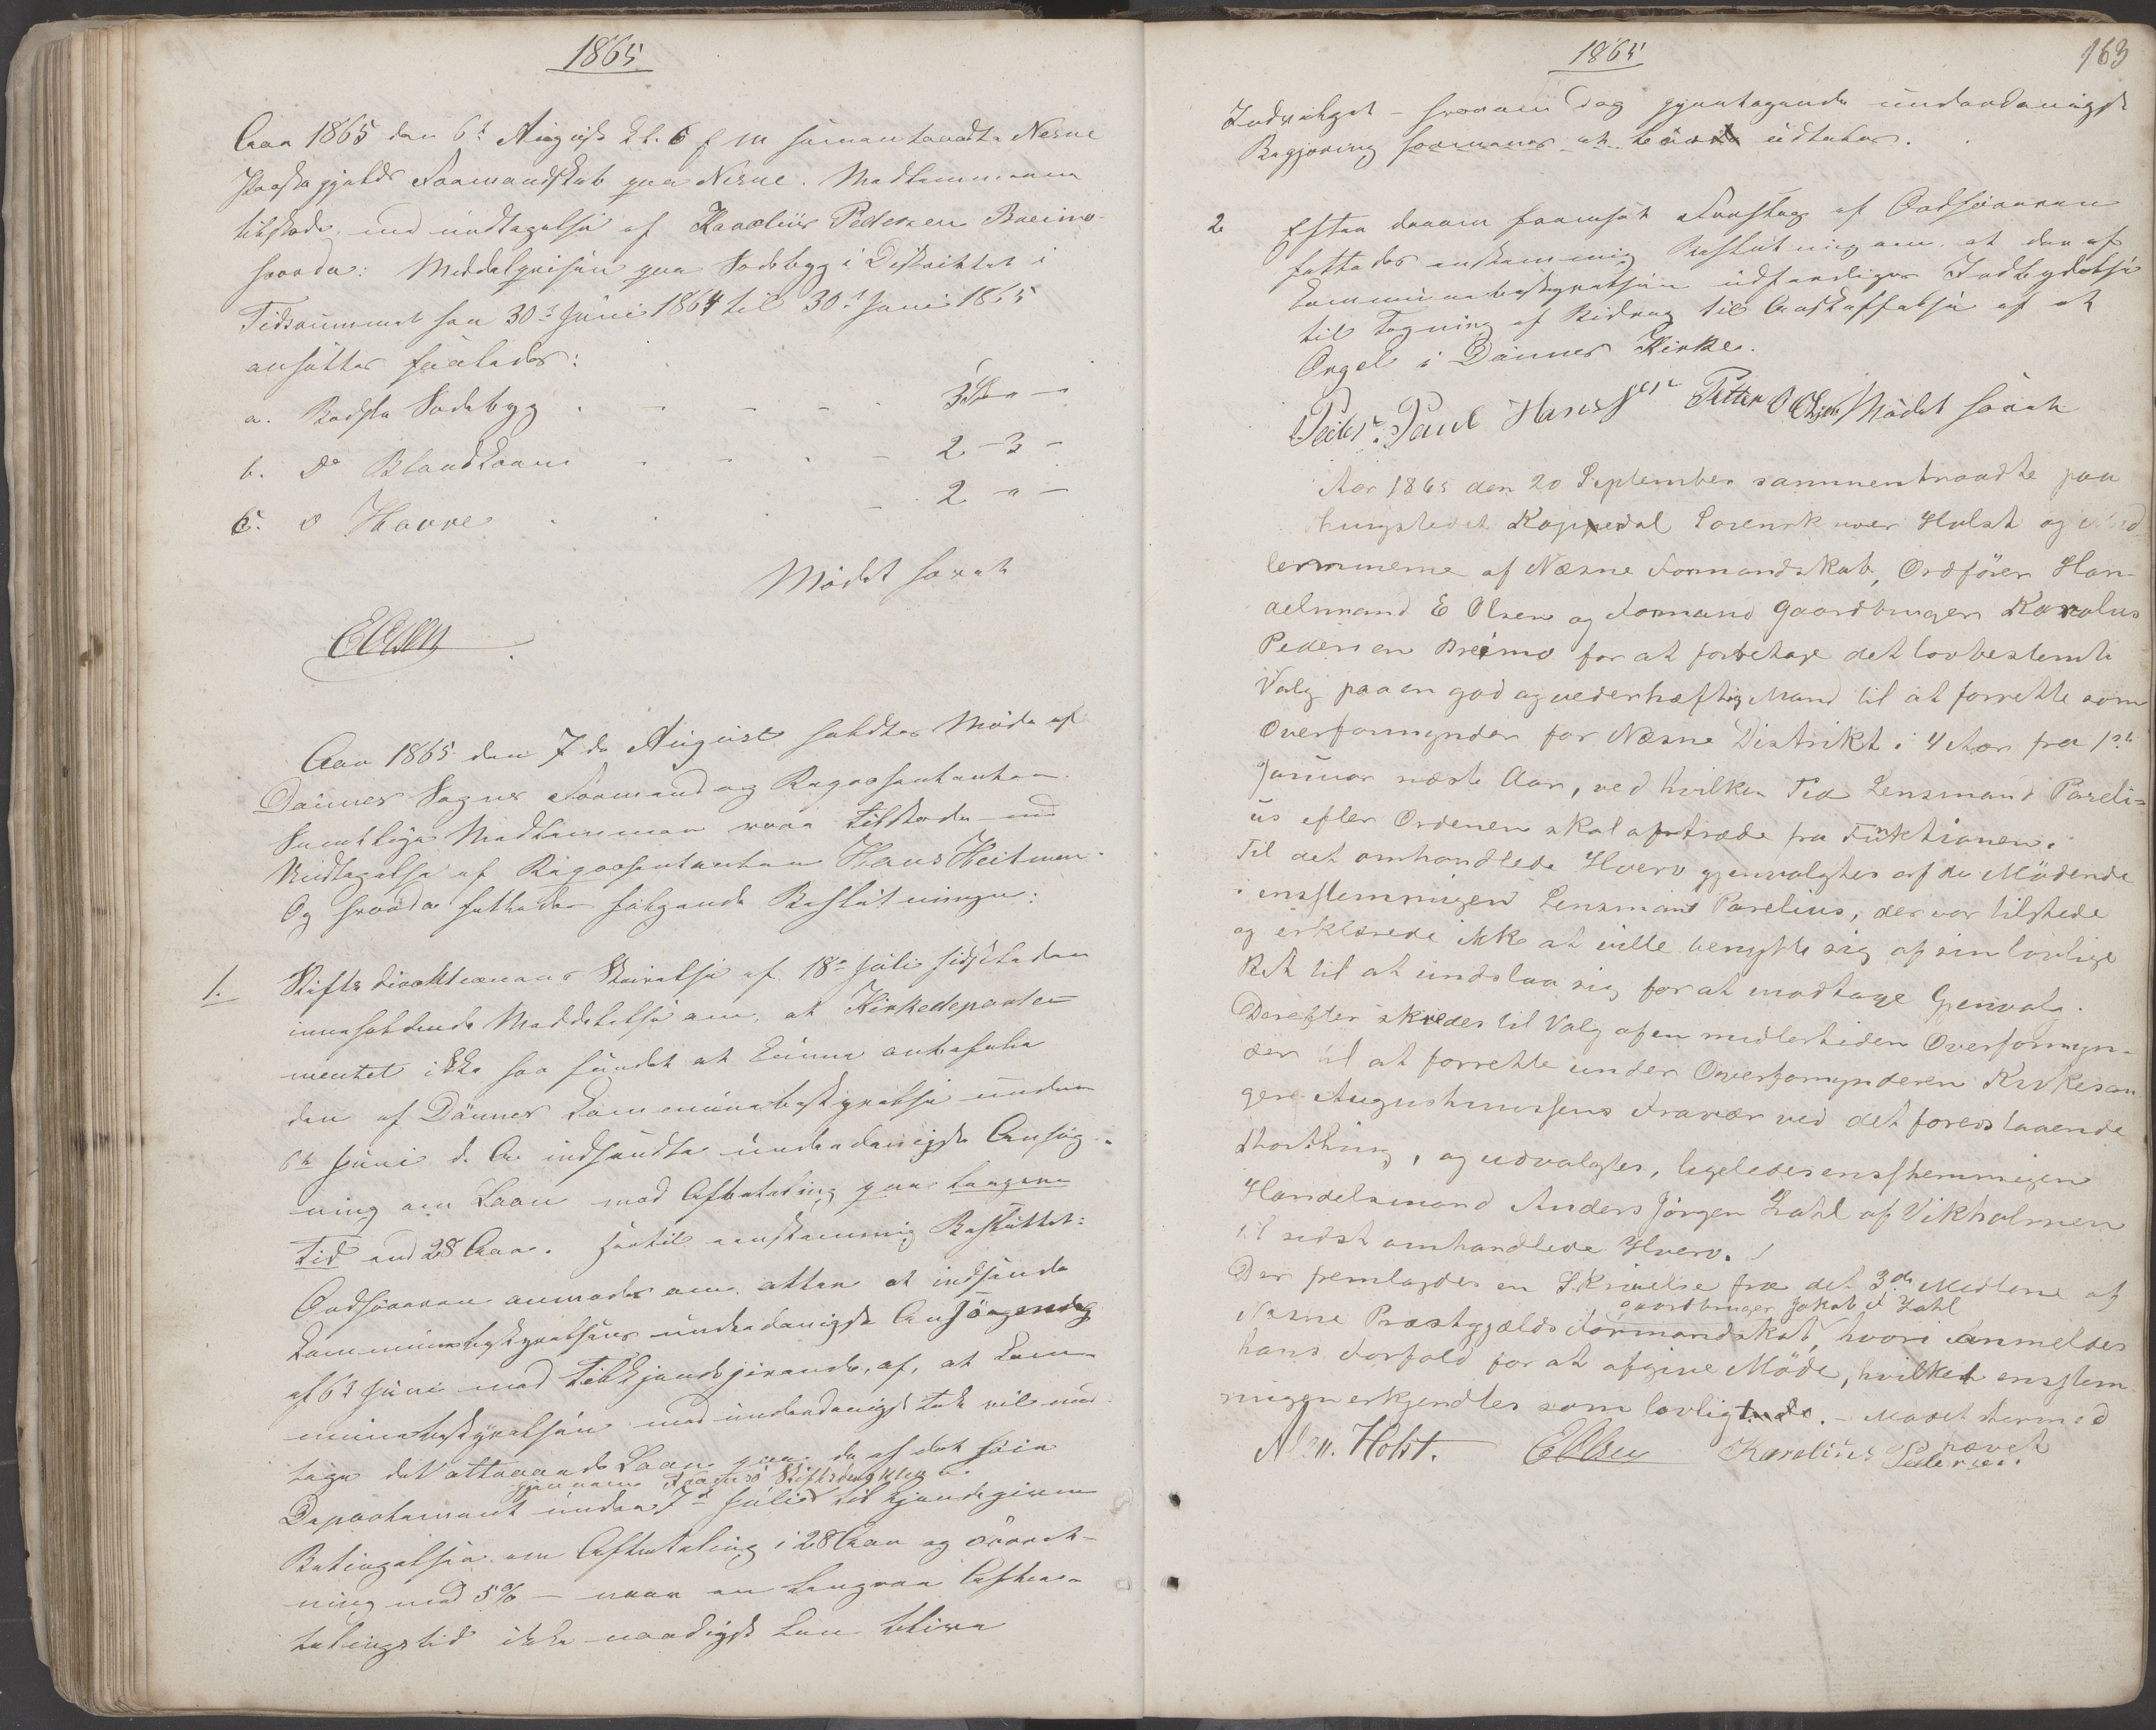 1865
Aar 1865 den 6te August kl. 6 f m sammentraadte Nesne
Præstegjelds Formandskab paa Nesne. Medlemmerne
tilstede med undtagelse af Karelius Pedersen Breimo
hvorda: Middelprisen paa Sædebyg i Distriktet i
Tidsrummet fra 30te Juni 1864 til 30te Juni 1865
ansattes saaledes:
a. Bedste Sædebyg . - - - - 3 " -
b. Do Blandkorn - - - - 2 - 3 -
c. D Havre . . . - 2 - " -
Mødet hævet
EOlsen
Aar 1865 den 7de August holdtes Møde af
Dønnes Sogns Formænd og Repræsentanter.
Samtlige Medlemmer vare tilstede med
Undtagelse af Repræsentanten Hans Heitmen.
Og hvorda fattedes følgende Beslutninger:
1. Stiftsdirektionens Skrivelse af 18de Juli sidstleden
inneholdende Meddelelse om, at Kirkedeparte-
mentet ikke har fundet at kunne anbefale
den af Dønnes Kommunebestyrelse under
6te Juni d. A. indsendte underdanigste Ansøg-
ning om Laan mod Afbetaling paa længere
Tid end 28 Aar. Hertil enstemmig Besluttet:
Ordføreren anmodes om atter at indsende
Kommunebestyrelsens underdanigste Ansøgende
af 6te Juni med Tilkjendegivende, af, at Kom-
munebestyrelsen med underdanigst Tak vil mod-
tage det attraaede Laan paa de af det høie
gjennem Tromsø Stiftsdirektion
Departement under 7de Juli tilkjendegivne
Betingelser om Afbetaling i 28 Aar og Forrent-
ning med 5% - naar en længere Afbe-
talingstid ikke naadigst kan blive
1865
163
Indvilget - hvorom Dog gjentagende underdanigst
Begjæring formenes at burde udtales.
2 Efter derom fremsat Forslag af Ordføreren
fattedes enstemmig Beslutning om at der af
Kommunebestyrelsen udfærdiges Indbydelse
til Tegning af Bidrag til Anskaffelse af et
Orgel i Dønnes Kirke.
Peder Paul Hansen Petter Olsen Mødet hævet
Aar 1865 den 20 September sammentraadte paa
thingstedet Kopperdal Sorenskriver Holst og Med
lemmerne af Næsne Formandskab, Ordfører Han-
delsmand E Olsen og Formand Gaardbruger Karolus
Pedersen Breimo for at foretage det lovbestemte
Valg paa en god og vederhæftig Mand til at forrette som
Overformynder for Næsne Distrikt i 4 Aar fra 1ste
Januar næste Aar, ved hvilken Tid Lensmand Pareli-
us efter Ordenen skal aftræde fra Funktionen.
Til det omhandlede Hverv gjenvalgtes af de Mødende
enstemmigen Lensmand Parelius, der var tilstede
og erklærede ikke at ville benytte sig af sin lovlige
Ret til at undslaa sig for at modtage Gjenvalg.
Derefter skredes til Valg af en midlertiden Overformyn-
der til at forrette under Overformynderen Kirkesan
gere Augustinussens Fravær ved det forestaaende
Storthing, og udvalgtes, ligeledes enstemmigen
Handelsmand Anders Jørgen Zahl af Vikholmen
til sidst omhandlede Hverv.
Der fremlagdes en Skrivelse fra det 3de Medlem af
gaardbruger Jakob Zahl
Nesne Præstgjælds Formandskab, hvori Anmeldes
hans Forfald for at afgive Møde, hvilket enstem
migen erkjendtes som lovligt. - Mødet hermed
hævet
Holst. EOlsen Karelius Pedersen.